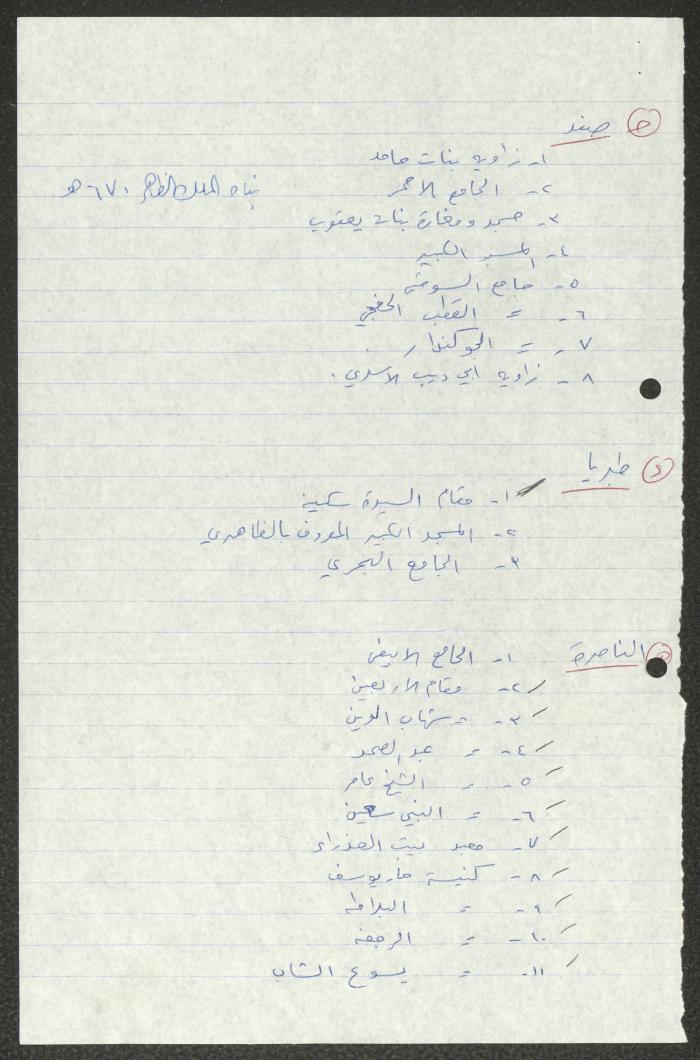 ج صفد
١- زاوية بنات حامد
٢- الجامع الاحمر بناه الملك الظاهر ٦٧٠ هـ
٣- مسجد ومغارة بنات يعقوب
٤- المسجد الكبير
٥- جامع السوقة
٦- = القطب الخفجي
٧- = الجوكندار
٨- زاوية ابي ديب الاسدي.
د طبريا
١- مقام السيدة سكينة
٢- المسجد الكبير المعروف بالظاهري
٣- الجامع البحري
ه الناصرة
١- الجامع الابيض
٢- مقام الاربعين
٣- = شهاب الدين
٤- = عبد الصمد
٥- = الشيخ عامر
٦- = النبي سعين
٧- معبد بيت العذراء
٨- كنيسة مار يوسف
٩- = البلاطة
١٠- = الرجفة
١١- = يسوع الشاب